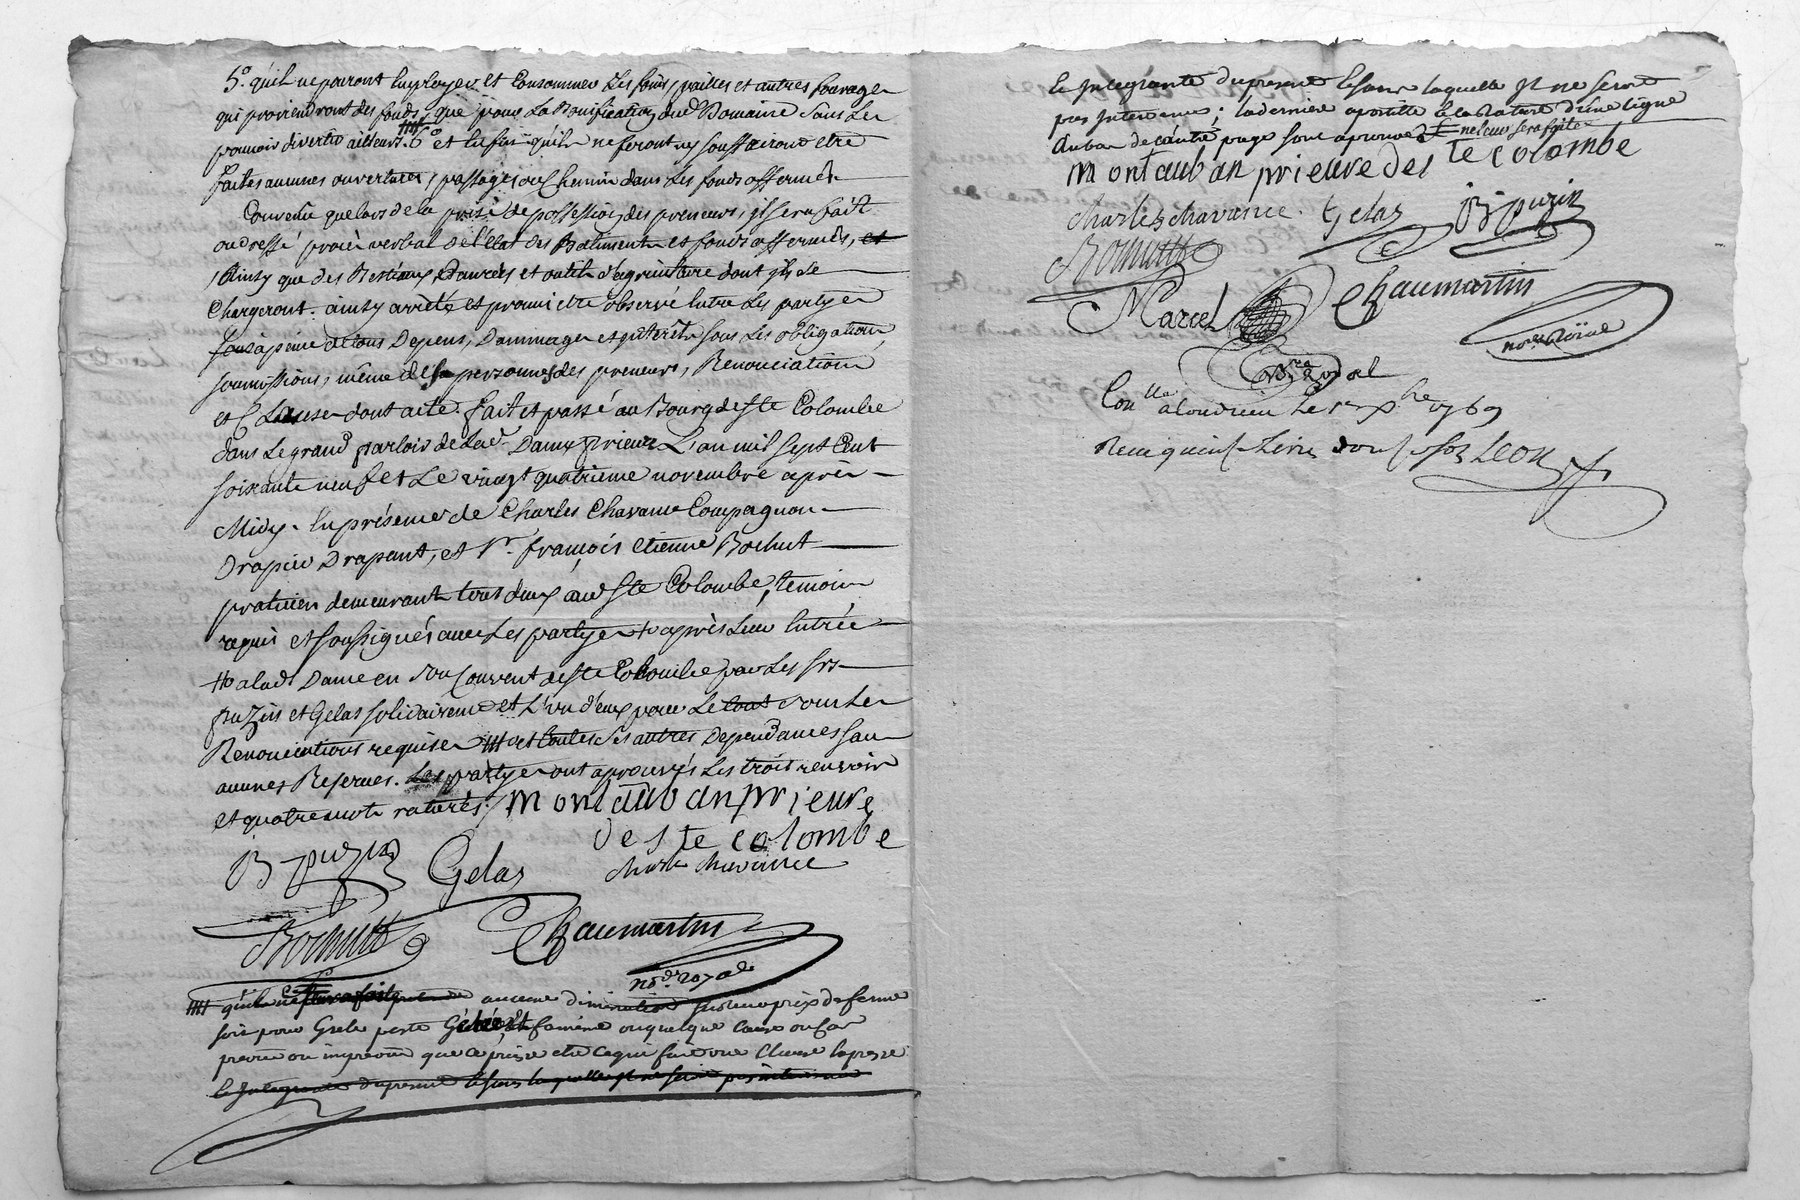 5.° qu'il ne pouront Employer et Consommer Les foins pailles et autres fourage
qui proviendront des fonds, que pour La Bonification dud. Domaine Sans Les
pouvoir divertir ailleurs. 6.° et Enfin qu'ils ne feront ny souffriront etre
faites aucunes ouvertures, passages ou Chemin dans Les fonds affermés
Convenu que lors de la prise de possession des preneurs, il sera fait
ou dressé procès verbal de l'Etat des Batiments et fonds affermés, et
Ainsy que des Bestiaux, Danrées et outils d'agriculture dont ils se
Chargeront. ainsy arreté et promis etre observé Entre Les partyes
a peine de tous Depens, Dommages et intérèts sous Les obligations
soumissions, même de personnes des preneurs, Renonciations
et Clauses dont acte. fait et passé au Bourg de ste Colombe
dans Le grand parloir de Lad. Dame prieure L'an mil sept Cent
soixante neuf et Le vingt quatrieme novembre après
Midy. En présence de Charles Chavance Compagnon
Drapier Drapant, et Sr. françois etienne Bochut
praticien demeurant tous deux aud ste Colombe, temoins
requis et soussignés avec Les partyes to après Leur Entrée
to a lad. Dame en son Couvent de ste Colombe par Les srs
puzin et Gelas solidairement et L'un d'eux pour Le tout sous Les
Renonciations requises et toutes Ses autres Dependances sans
aucunes Reserves. Les partyes ont aprouvés Les trois renvois
et quatre mots raturés. / montauban prieure
de ste colombe
B puzin Gelas charle chavance
Bochutt Chaumartin
no.re royal
qu'il ne aucune diminution sur leur prix de ferme
soit pour Grele peste Gelée et famine ou quelque Cause ou Cas
prevu ou imprevu que ce puisse etre ce qui fait une Clause Expresse
et Integrante du present Et sans laquelle il ne seroit pas intervenu
et Integrante du present Et sans laquelle Il ne seroit
pas Intervenu; la derniere apostille et la rature d'une ligne
Au bas de l'autre page sont aprouvés ne leur sera faite
montauban prieure de s te colombe
charles chavance. Gelas B puzin
Bochutt
Marcel Chaumartin
no.re Roïal
n.re royal
Con.lle a Condrieu Le 1er Xbre 1769
Recu quinse Livres dou s. six s Leon